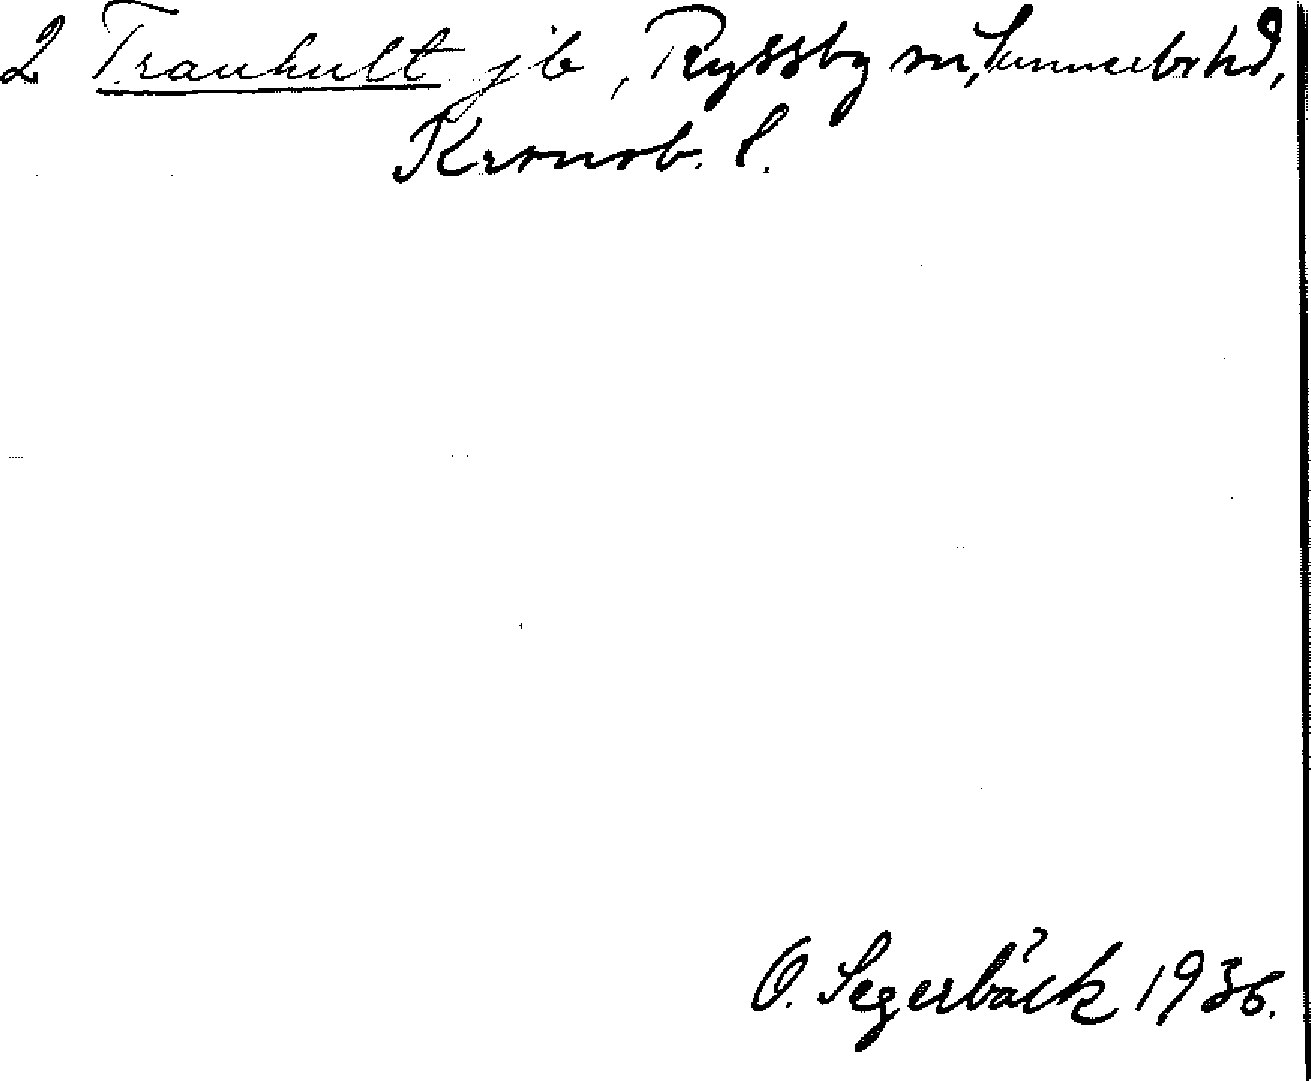 2 Tranhult jb, Ryssby sn, Sunnerbo hd,
Kronob. l.
O. Segerbäck 1936.